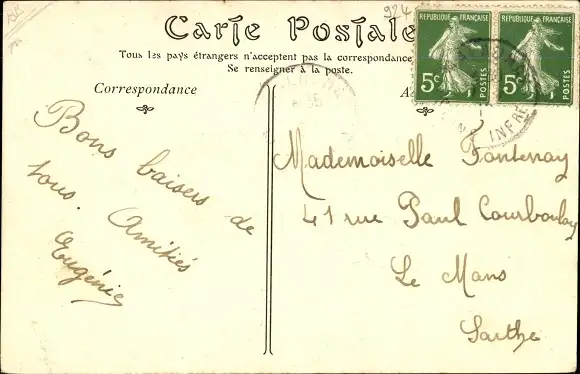 924
Carte Postale
Tous les pays étrangers n'acceptent pas la correspondance
Se renseigner à la poste.
Correspondance
RÉPUBLIQUE FRANÇAISE
5c
POSTES
RÉPUBLIQUE FRANÇAISE
5c
POSTES
INFRE
Bons baisers de
tous. Amitiés
Eugénie
Mademoiselle Fontenay
41 rue Paul Courboulay
Le Mans
Sarthe